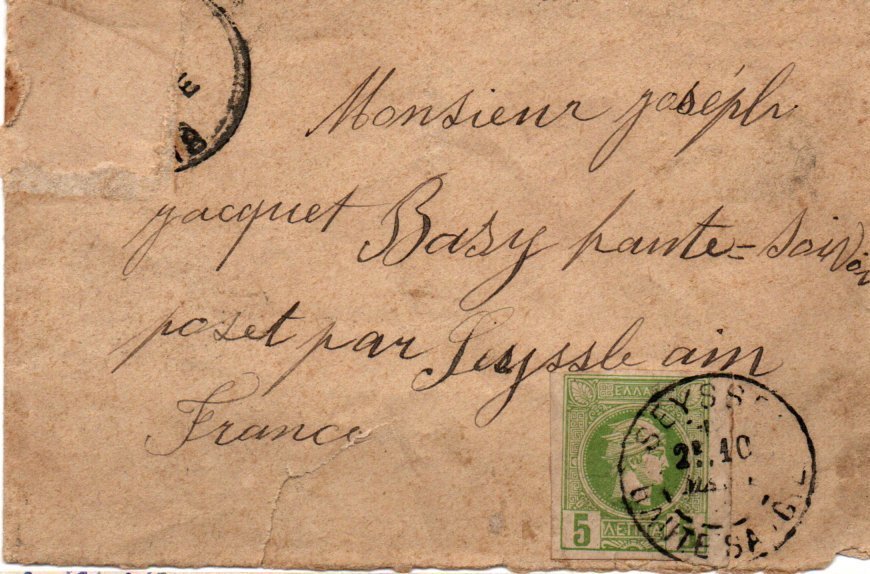 Monsieur joséph
jacquet Basy haute=Soivoi
poset par Seyssle ain
France
ΕΛΛΑ
5 ΛΕΠΤΑ
SEYSS
10
HAUTE SA